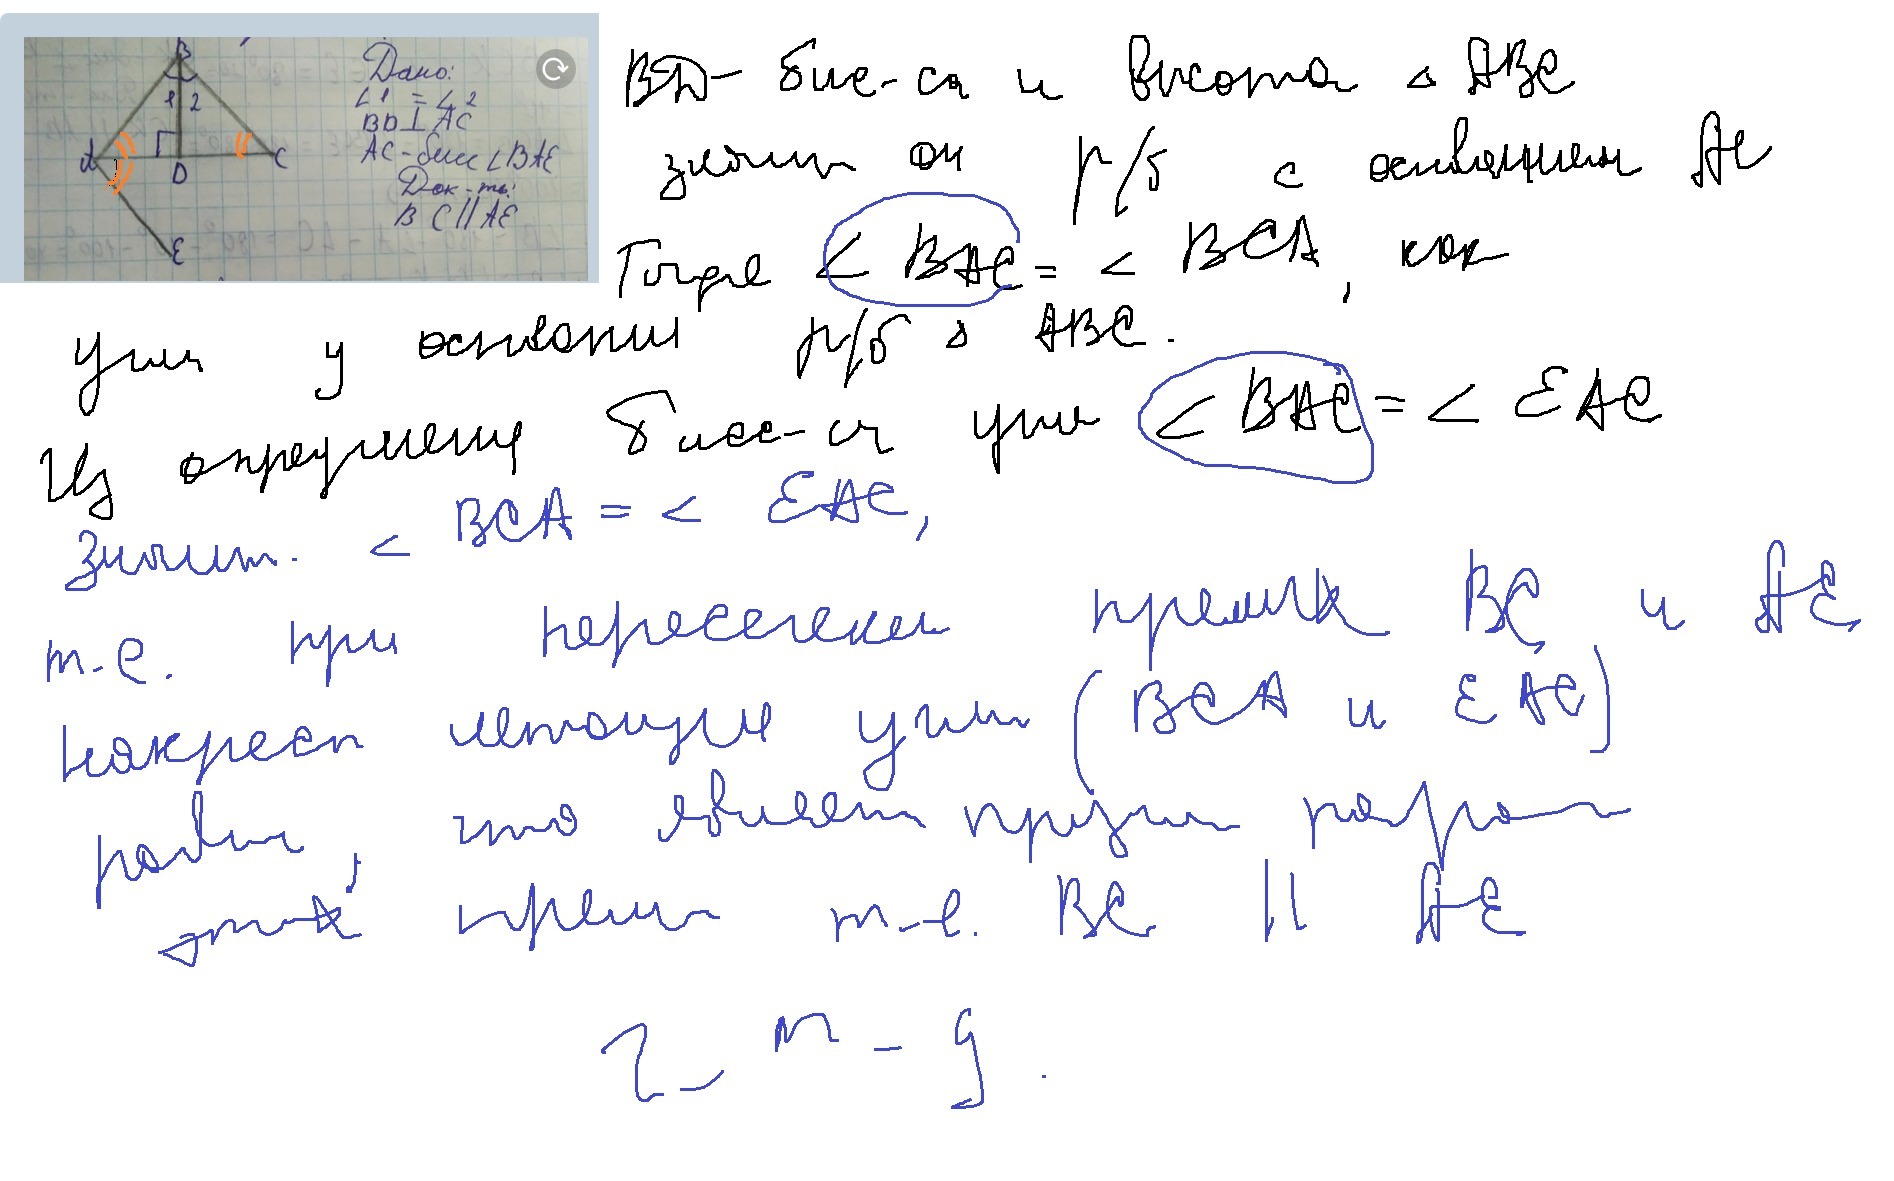 B
1 2
A
D
C
E
Дано:
∠1 = ∠2
BD⊥AC
AC - бисс ∠BAE
Док-ть:
BC || AE
BD - бис-са и высота △ ABC
значит он р/б с основанием AC
Тогда < BAC = < BCA, как
углы у основании р/б △ ABC.
Из определения бисс-сы угла < BAC = < EAC
Значит. < BCA = < EAC,
т-е. при пересечении прямых BC и AE
накрест лежащие углы (BCA и EAC)
равны, что является признаком
этих прямых т-е. BC || AE
Ч_ т - д.